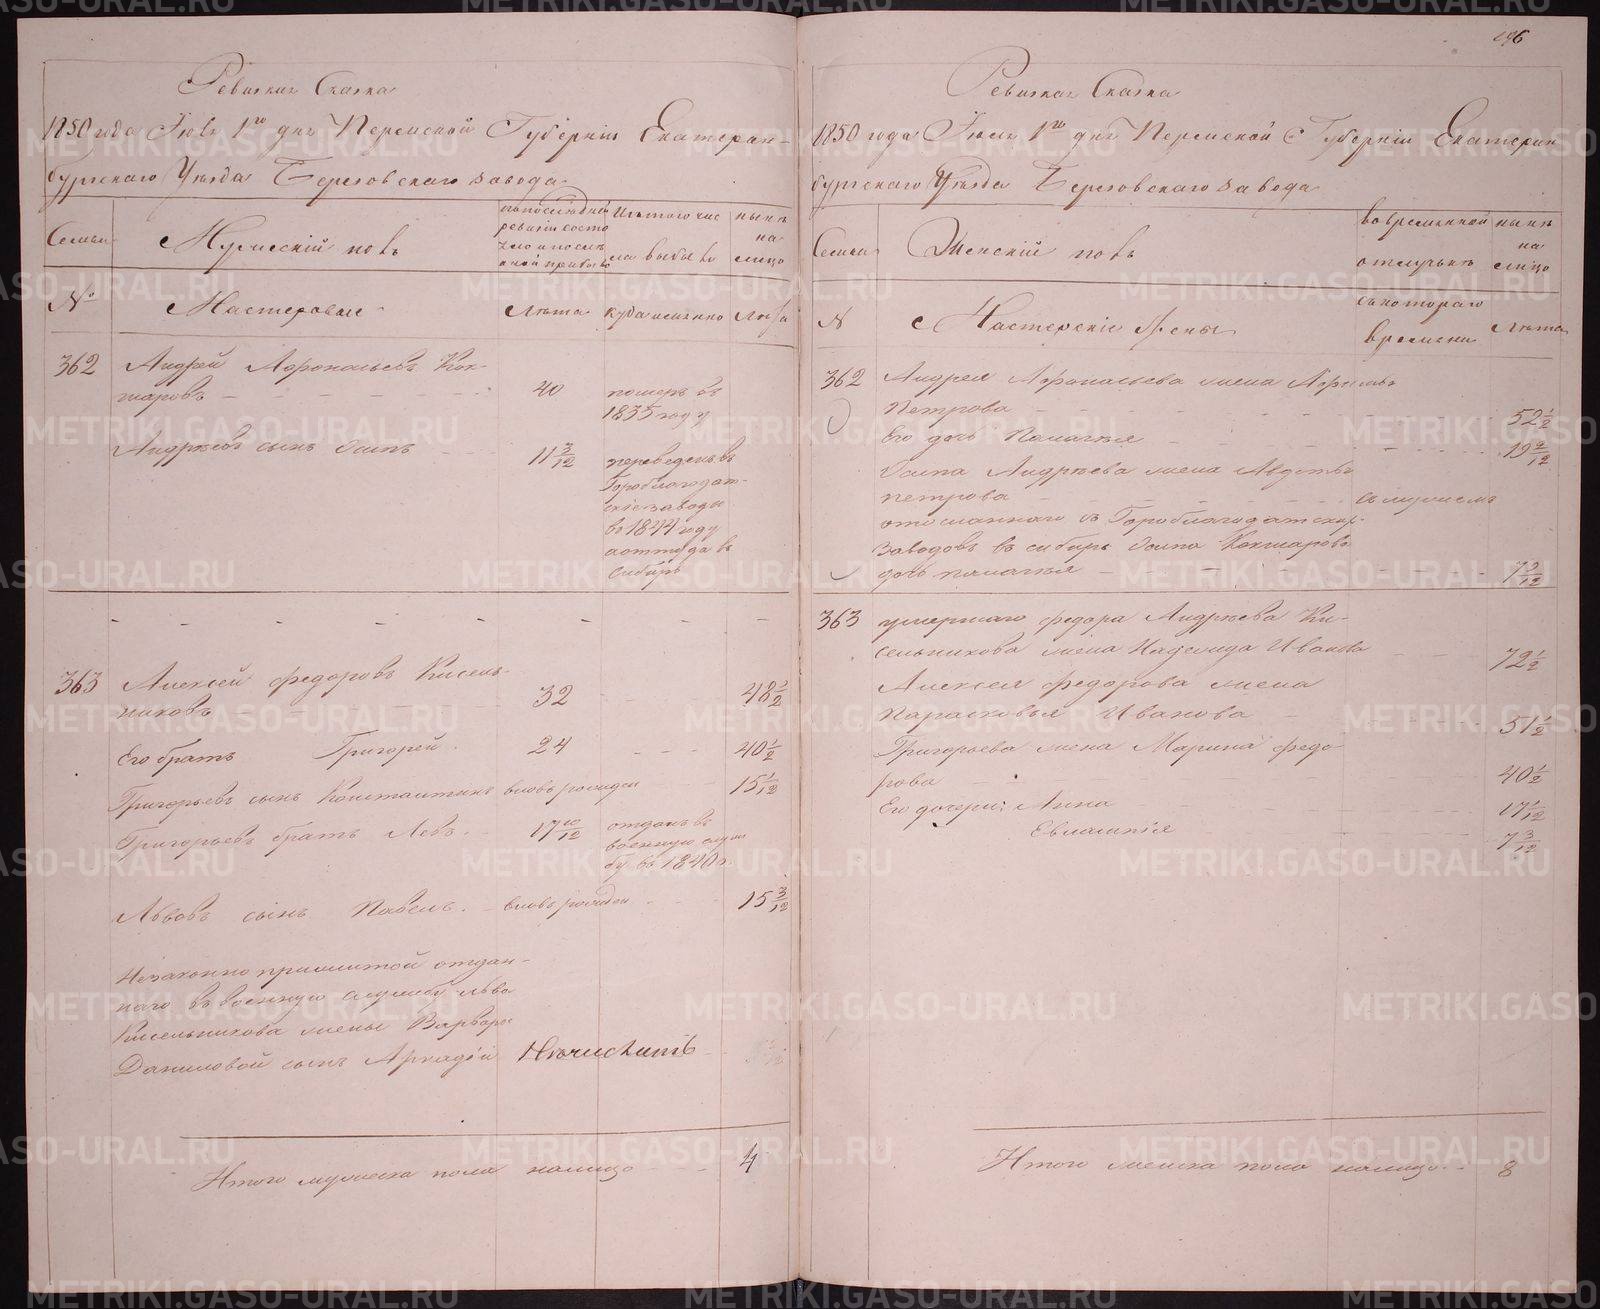 Ревизкая Сказка
1850 года Июля 1го дня Пермской Губернiи Екатерин-
бургскаго Уезда Березовскаго завода
Семьи
Мужескiй полъ
по последней
ревизiи состо
яло и после
оной прибыло
Изъ того чис
ла выбыло
ныне
на
лицо
№
Мастеровые
Лѣта
куда именно
Лѣта
362
Андрей Афонасьевъ Кок-
шаровъ
40
померъ въ
1835 году
Андреевъ сынъ Осипъ
11 3/12
переведенъ въ
Гороблагодат-
скiе заводы
въ 1844 году
а оттуда въ
Сибирь
363
Алексей Федоровъ Кисель-
никовъ
32
48 1/2
Его братъ Григорей
24
40 1/2
Григорьевъ сынъ Константинъ
вновь рожден
15 1/12
Григорьевъ братъ Левъ
17 10/12
отданъ въ
военную служ
бу въ 1840 г.
Львовъ сынъ Павелъ
вновь рожден
15 3/12
Незаконно прижитой отдан-
наго въ военную службу Льва
Кисельникова жены Варвары
Даниловой сынъ Аркадiй
Итого мужеска пола налицо
4
196
Ревизкая Сказка
1850 года Июля 1го дня Пермской Губернiи Екатерин
бургскаго Уезда Березовскаго завода
Семьи
Женскiй полъ
во временной
отлучке
ныне
на
лицо
N
Мастерскiе жены
съ котораго
времени
Лѣта
362
Андрея Афонасьева жена
Петрова
52 1/2
Его дочь Паладья
19 9/12
Осипа Андреева жена Авдотья
Петрова
съ мужемъ
отосланнаго съ Гороблагодатских
заводовъ въ Сибирь Осипа Кокшарова
дочь Паладья
7 3/12
363
умершаго Федора Андреева Ки-
сельникова жена Надежда Иванова
72 1/2
Алексея Федорова жена
Парасковья Иванова
51 1/2
Григорьева жена Марина Федо-
рова
40 1/2
Его дочери: Анна
17 1/12
Евлампiя
7 3/12
Итого женска пола налицо
8
METRIKI.GASO-URAL.RU